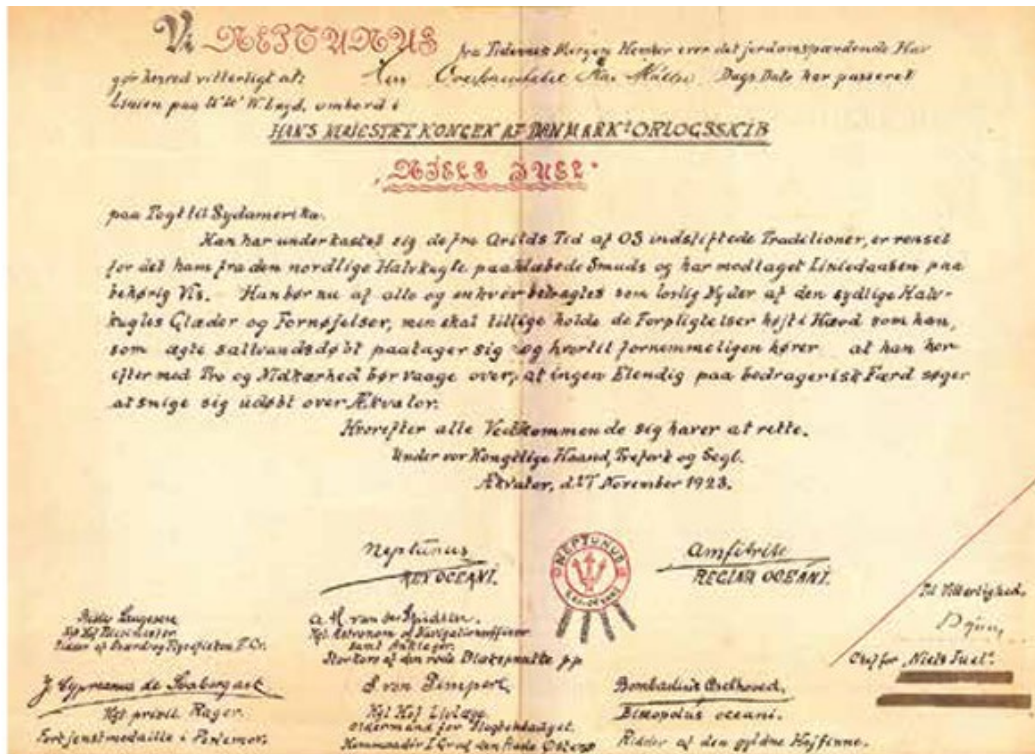 Vi NEPTUNUS fra Tidernes Morgen Hersker over det jordomspændende Hav
gör herved vitterligt at: Dags Dato har passeret
Linien paa W.Lngd. ombord i
HANS MAJESTÆT KONGEN AF DANMARK'S ORLOGSSKIB
"NIELS JUEL"
paa Togt til Sydamerika.
Han har underkastet sig de fra Arilds Tid af OS indstiftede Traditioner, er renset
for det ham fra den nordlige Halvkugle paaklæbede Smuds og har modtaget Liniedaaben paa
behørig Vis. - Han bør nu af alle og enhver betragtes som lovlig Nyder af den sydlige Halv-
kugles Glæder og Fornøjelser, men skal tillige holde de Forpligtelser højt i Hævd som han,
som ægte saltvandsdøbt paatager sig og hvortil fornemmeligen hører at han her-
efter med Tro og Nidkærhed bør vaage over, at ingen Elendig paa bedragerisk Færd søger
at snige sig udøbt over Ækvator.
Hvorefter alle Vedkommende sig haver at rette.
Under vor Kongelige Haand, Trefork og Segl.
Ækvator, d. 27 November 1923.
Neptunus
REX OCEANI.
NEPTUNUS
REX OCEANI
Amfitrite
REGINA OCEANI.
Til Vitterlighed.
Chef for "Niels Juel".
Kgl. Astronom og Navigationsofficer
samt Anklager.
Storkors af den røde p.p.
J. Cypreanus de
Kgl. privil. Rager.
Fortjenstmedaille i Perlemor.
S. von Pimpert
Kgl. Hof Livlæge
Oldermand for
Kommandør I Grad af den
Bombadius Axelhoved.
Biskopolus oceani.
Ridder af den gyldne Hajfinne.